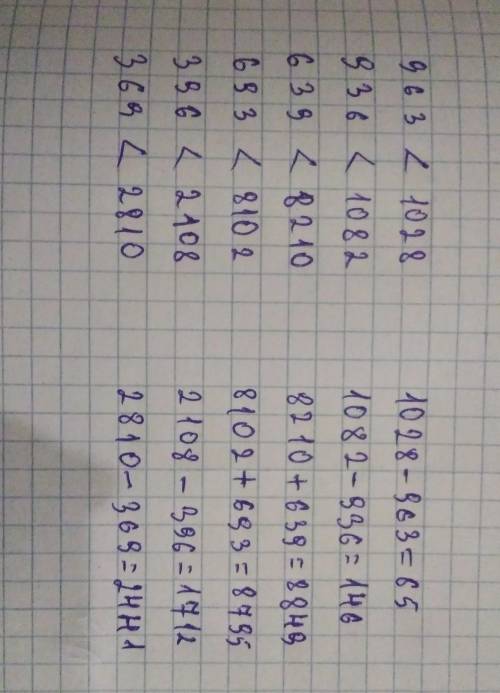 963 < 1028 1028 - 963 = 65
936 < 1082 1082 - 936 = 146
639 < 8210 8210 + 639 = 8849
693 < 8102 8102 + 693 = 8795
396 < 2108 2108 - 396 = 1712
369 < 2810 2810 - 369 = 2441